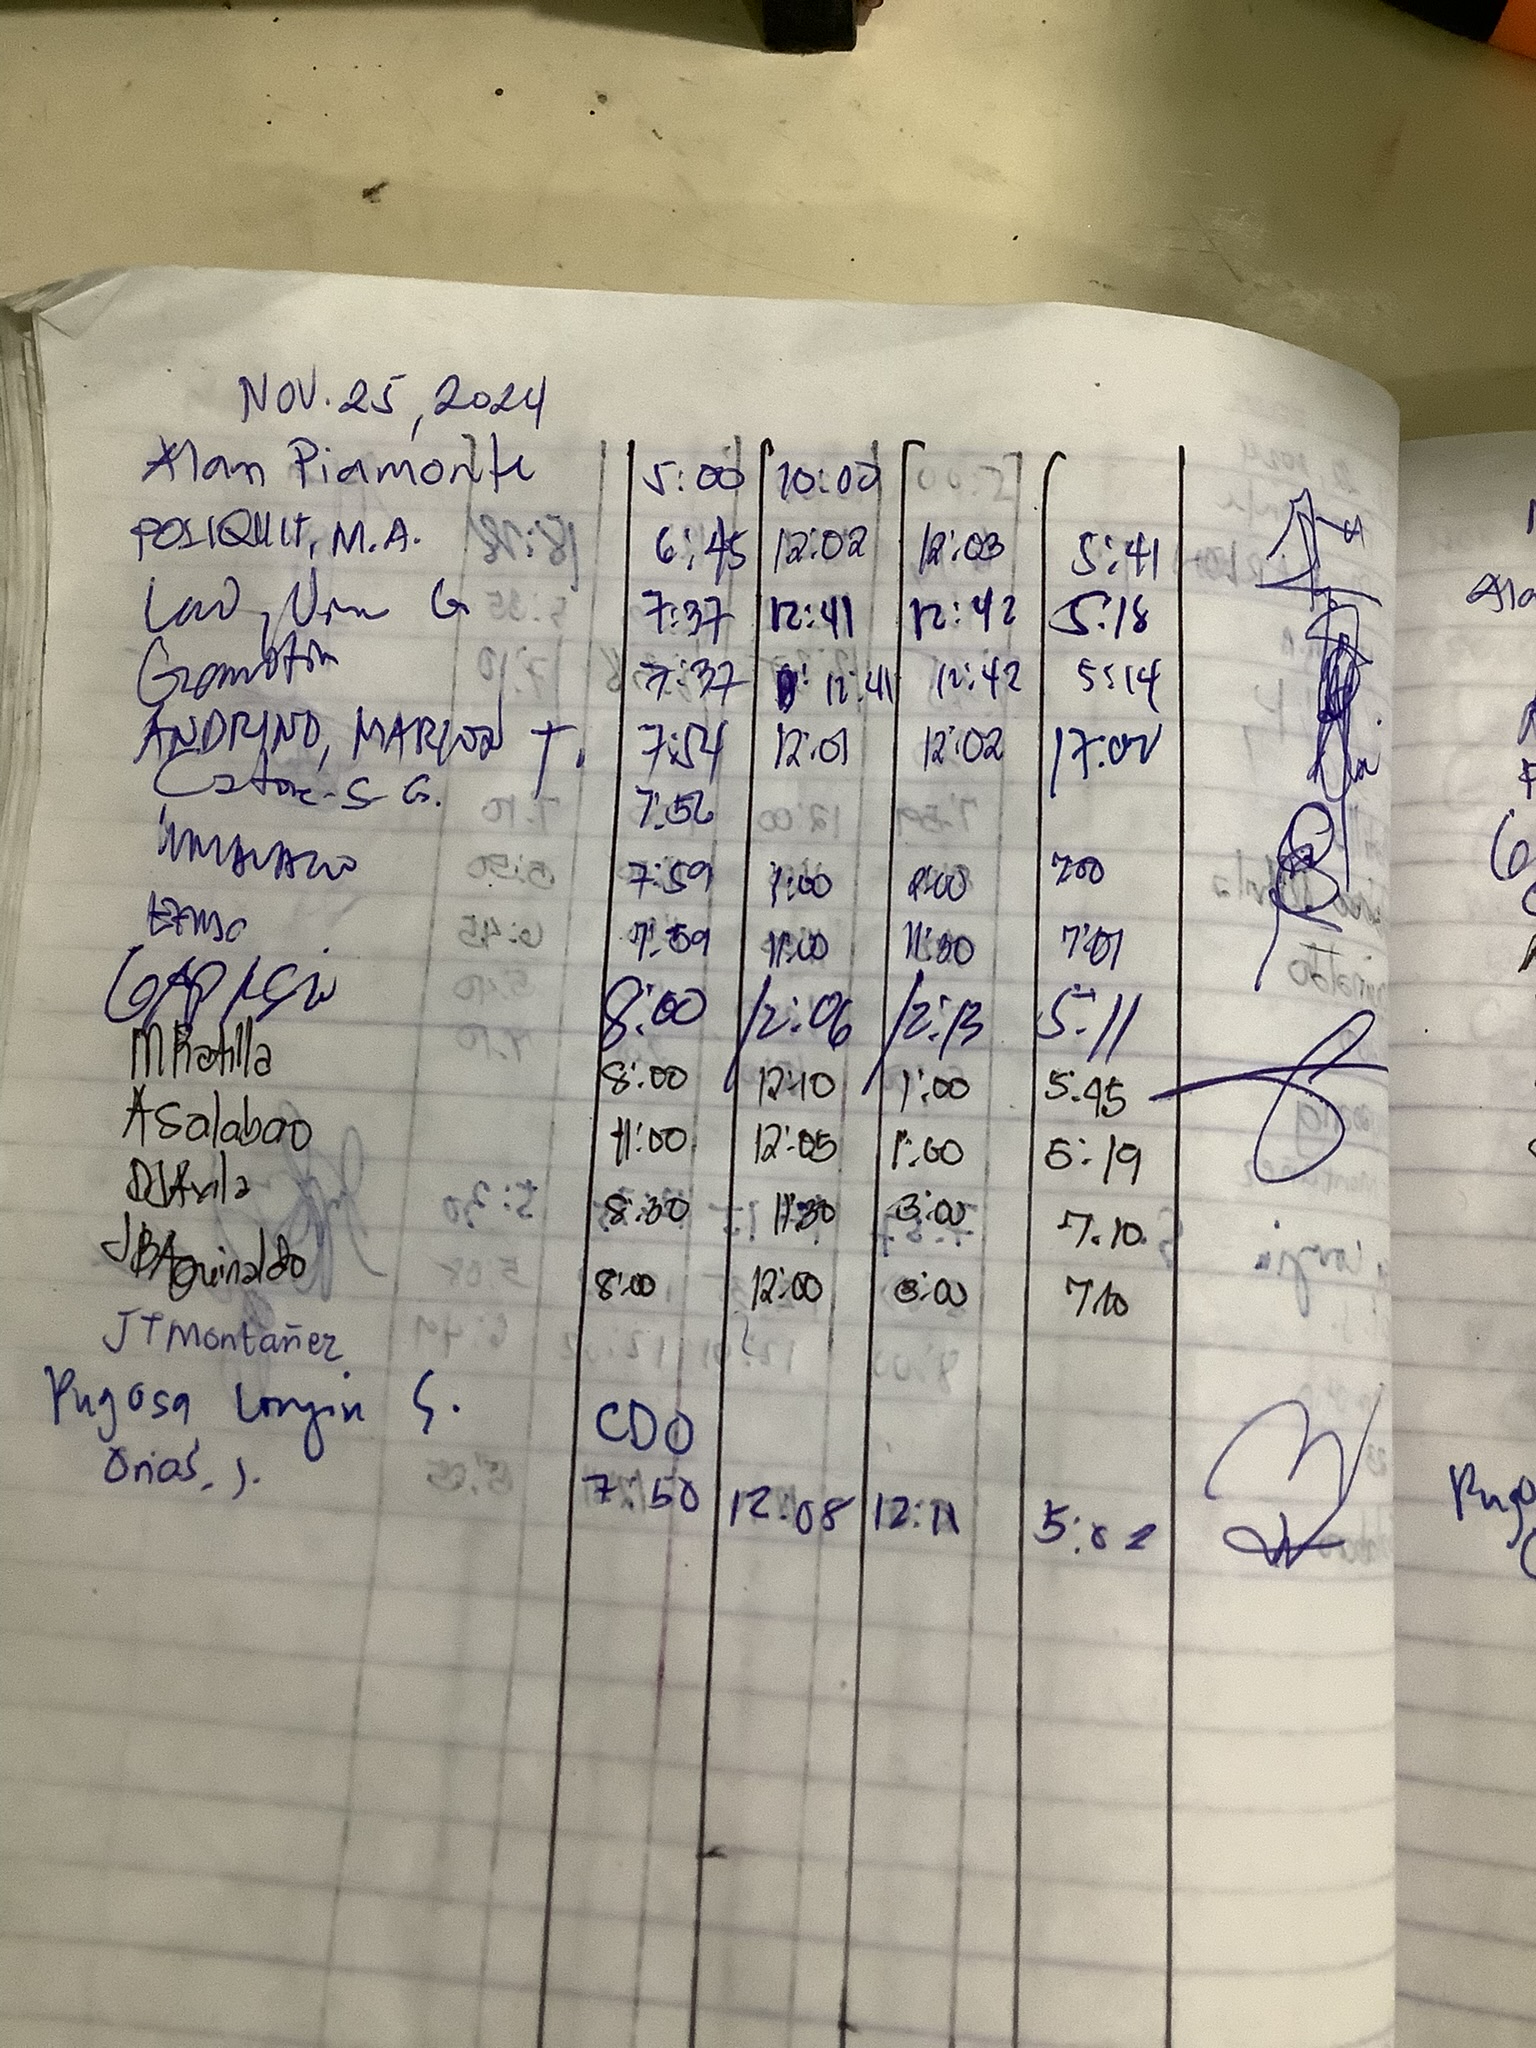 NOV. 25, 2024
Alan Piamonte 5:00 10:00
POSIQUIT, M.A. 6:45 12:02 12:03 5:41
G 7:37 12:41 12:42 5:18
7:37 12:41 12:42 5:14
ANDRINO, T. 7:54 12:01 12:02 17:02
G. 7:56
7:59 1:00 7:00
7:59 11:00 11:00 7:01
8:00 12:06 12:13 5:11
MRatilla 8:00 12:10 1:00 5:45
ASalabao 11:00 12:05 1:00 5:19
DJAvila 8:30 11:30 3:00 7:10
JBAguinaldo 8:00 12:00 3:00 7:10
JTMontañez
Pugosa, Longin S. CDO
Orias, J. 7:50 12:08 12:11 5:02